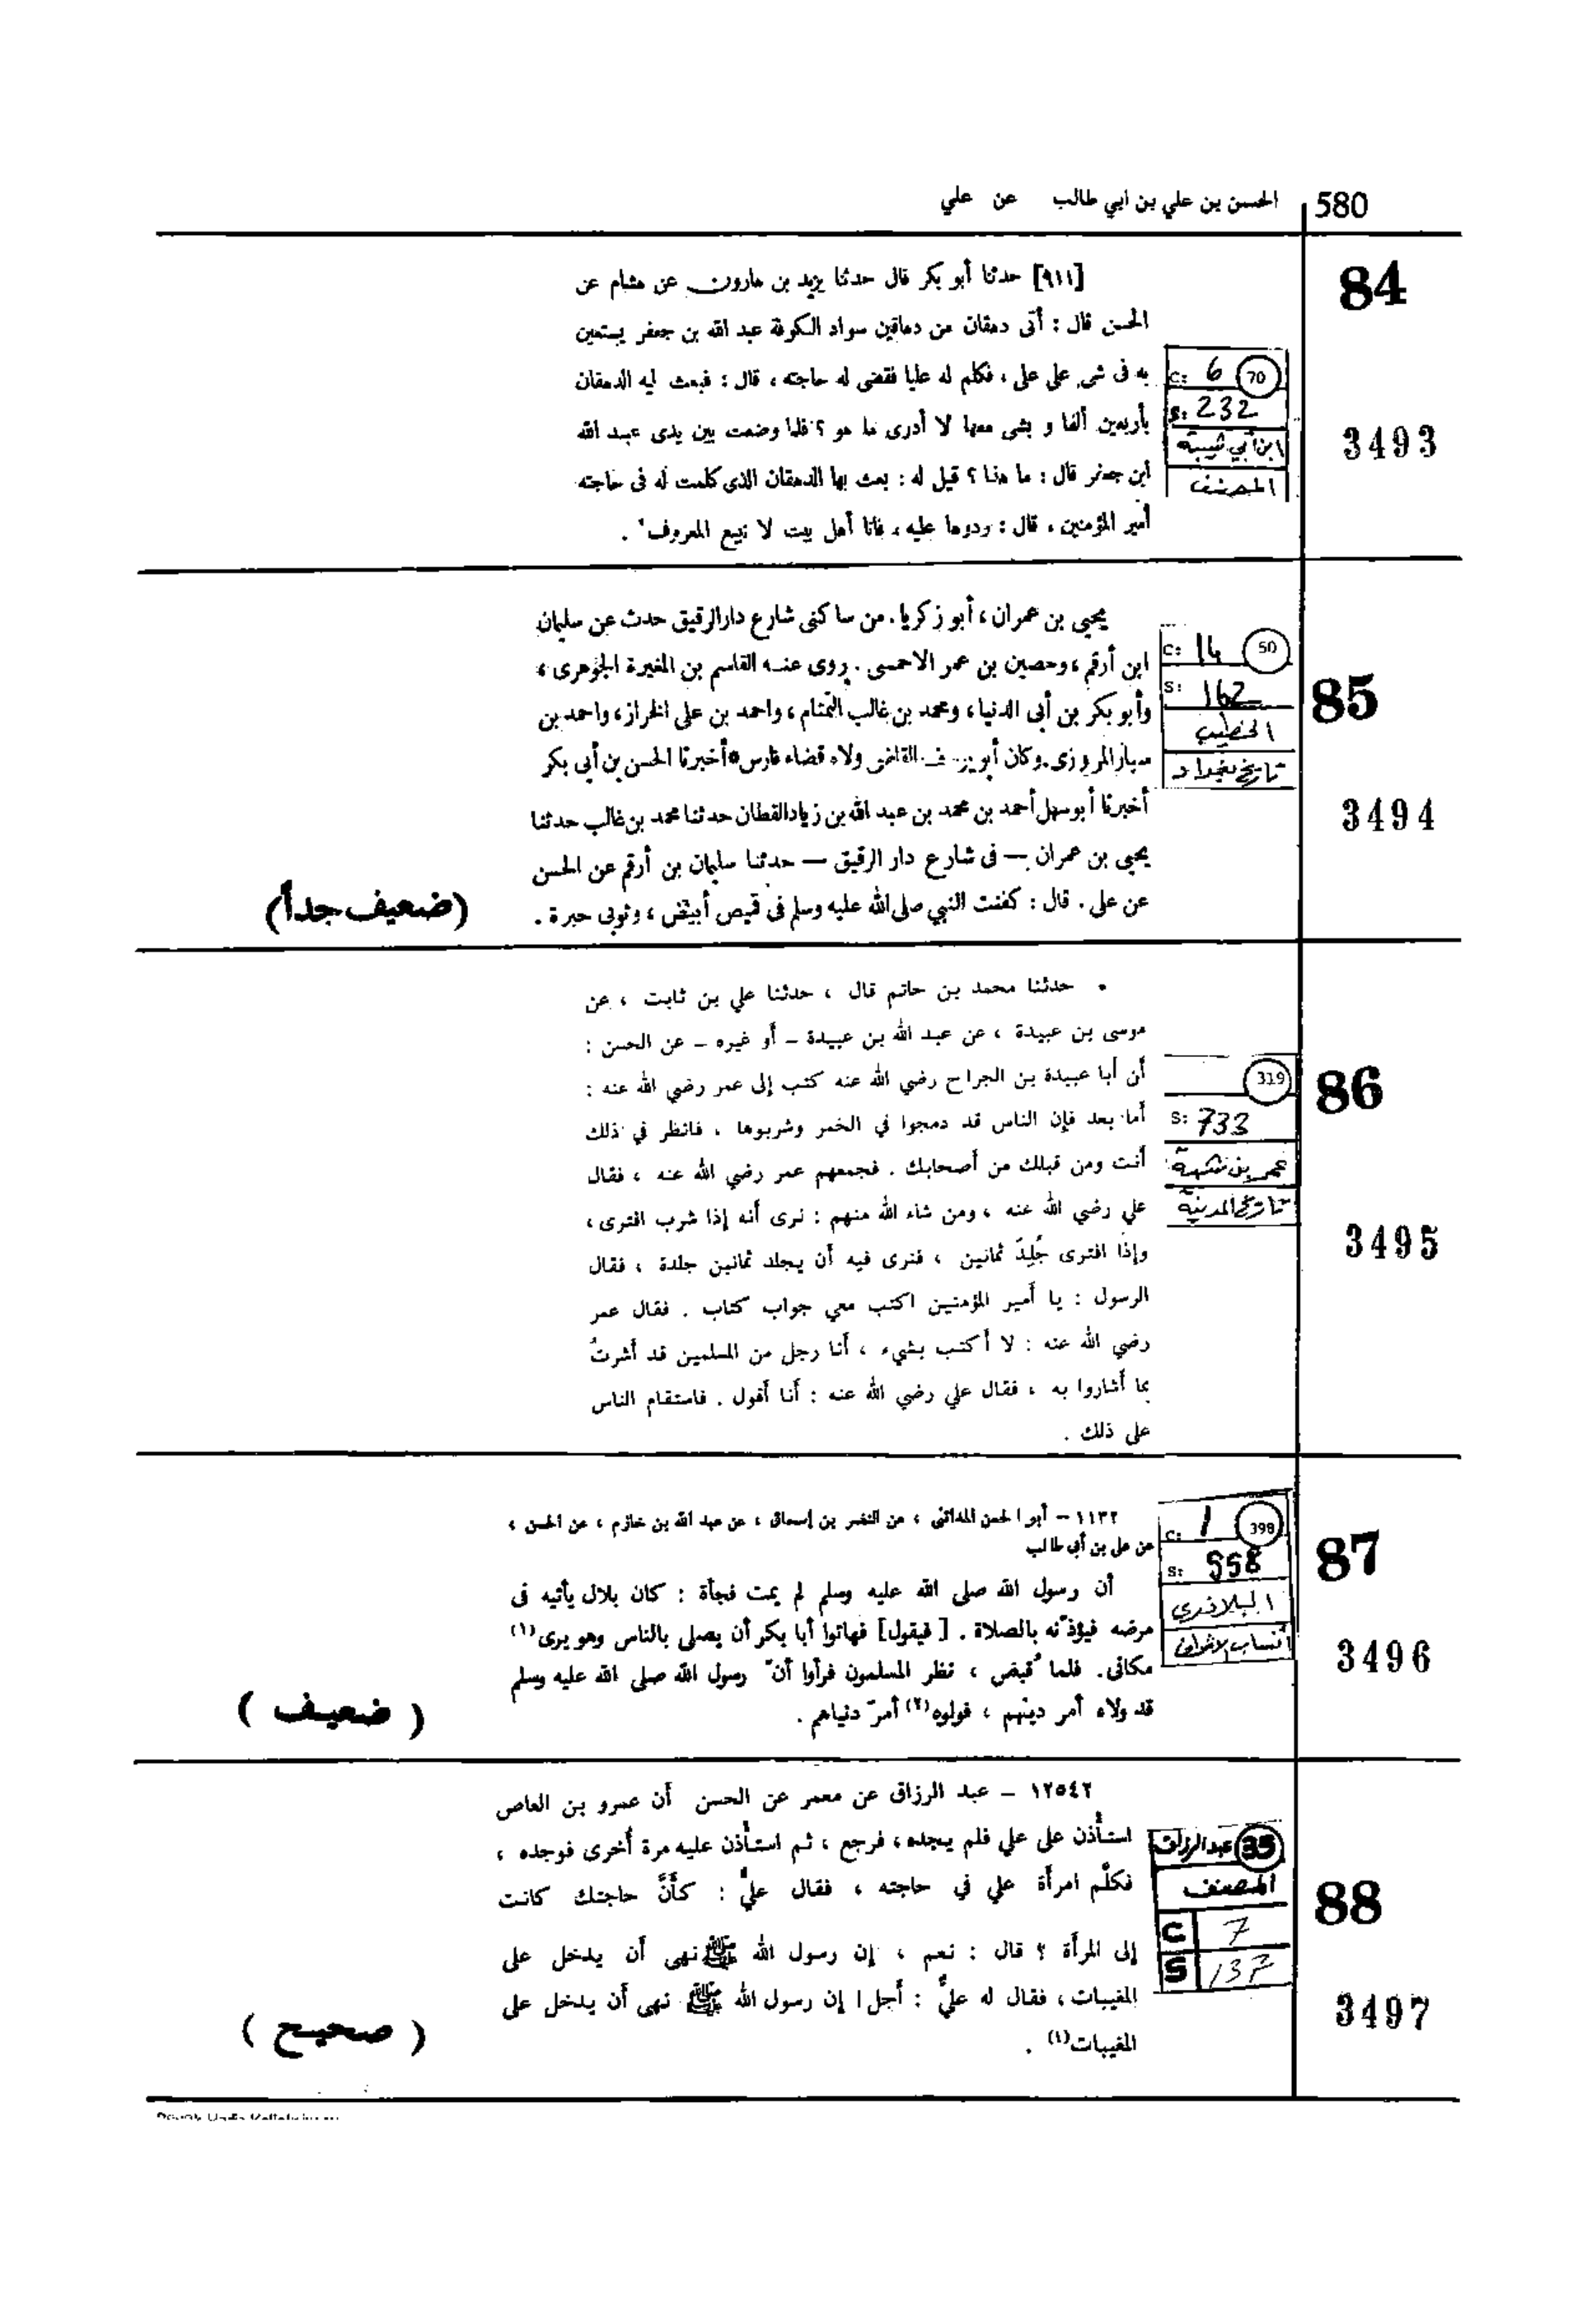 الحسن بن علي بن ابي طالب عن علي
580
84
[٩١١] حدثنا أبو بكر قال حدثنا يزيد بن هارون عن هشام عن
الحسن قال : أتى دهقان من دهاقين سواد الكوفة عبد الله بن جعفر يستعين
به فى شىء على على ، فكلم له عليا فقضى له حاجته ، قال : فبعث ليه الدهقان
بأربعين ألفا و بشى معها لا أدرى ما هو ؟ فلما وضعت بين يدى عبد الله
ابن جعفر قال : ما هذا ؟ قيل له : بعث بها الدهقان الذى كلمت له فى حاجته
أمير المؤمنين ، قال : ردوها عليه ، فانا أهل بيت لا نبيع المعروف .
C: 6 70
S: 232
ابن أبي شيبة
المصنف
3493
85
يحيى بن عمران ، أبو زكريا . من ساكنى شارع دار الرقيق حدث عن سليمان
ابن أرقم ، وحصين بن عمر الاحمسى . روى عنه القاسم بن المغيرة الجوهرى ،
وأبو بكر بن أبى الدنيا ، ومحمد بن غالب التمتام ، واحمد بن على الخراز ، واحمد بن
سيار المروزى . وكان أبو يوسف القاضى ولاه قضاء فارس * أخبرنا الحسن بن أبى بكر
أخبرنا أبو سهل أحمد بن محمد بن عبد الله بن زياد القطان حدثنا محمد بن غالب حدثنا
يحيى بن عمران — فى شارع دار الرقيق — حدثنا سليمان بن أرقم عن الحسن
عن على . قال : كفنت النبي صلى الله عليه وسلم فى قميص أبيض ، وثوبى حبرة .
(ضعيف جداً)
C: 14 50
S: 162
الخطيب
تاريخ بغداد
3494
86
• حدثنا محمد بن حاتم قال ، حدثنا علي بن ثابت ، عن
موسى بن عبيدة ، عن عبد الله بن عبيدة – أو غيره – عن الحسن :
أن أبا عبيدة بن الجراح رضي الله عنه كتب إلى عمر رضي الله عنه :
أما بعد فإن الناس قد دمجوا في الخمر وشربوها ، فانظر في ذلك
أنت ومن قبلك من أصحابك . فجمعهم عمر رضي الله عنه ، فقال
علي رضي الله عنه ، ومن شاء الله منهم : نرى أنه إذا شرب افترى ،
وإذا افترى جُلِدَ ثمانين ، فنرى فيه أن يجلد ثمانين جلدة ، فقال
الرسول : يا أمير المؤمنين اكتب معي جواب كتاب . فقال عمر
رضي الله عنه : لا أكتب بشيء ، أنا رجل من المسلمين قد أشرتُ
بما أشاروا به ، فقال علي رضي الله عنه : أنا أقول . فاستقام الناس
على ذلك .
319
S: 733
عمر بن شبة
تاريخ المدينة
3495
87
١١٣٢ – أبو الحسن المدائنى ، عن النضر بن إسحاق ، عن عبد الله بن خازم ، عن الحسن ،
عن على بن أبي طالب
أن رسول الله صلى الله عليه وسلم لم يمت فجأة : كان بلال يأتيه فى
مرضه فيؤذّنه بالصلاة . [ فيقول ] فهاتوا أبا بكر أن يصلى بالناس وهو يرى (١)
مكانى . فلما قُبض ، نظر المسلمون فرأوا أنّ رسول الله صلى الله عليه وسلم
قد ولاه أمر دينهم ، فولوه (٢) أمرَ دنياهم .
( ضعيف )
C: 1 398
S: 558
البلاذرى
أنساب الاشراف
3496
88
١٢٥٤٢ – عبد الرزاق عن معمر عن الحسن أن عمرو بن العاص
استأذن على علي فلم يجده ، فرجع ، ثم استأذن عليه مرة أخرى فوجده ،
فكلّم امرأة علي في حاجته ، فقال عليٌّ : كأَنَّ حاجتك كانت
إلى المرأة ؟ قال : نعم ، إن رسول الله ﷺ نهى أن يدخل على
المغيبات ، فقال له عليٌّ : أجل ! إن رسول الله ﷺ نهى أن يدخل على
المغيبات (١) .
( صحيح )
عبد الرزاق 35
المصنف
C 7
S 137
3497